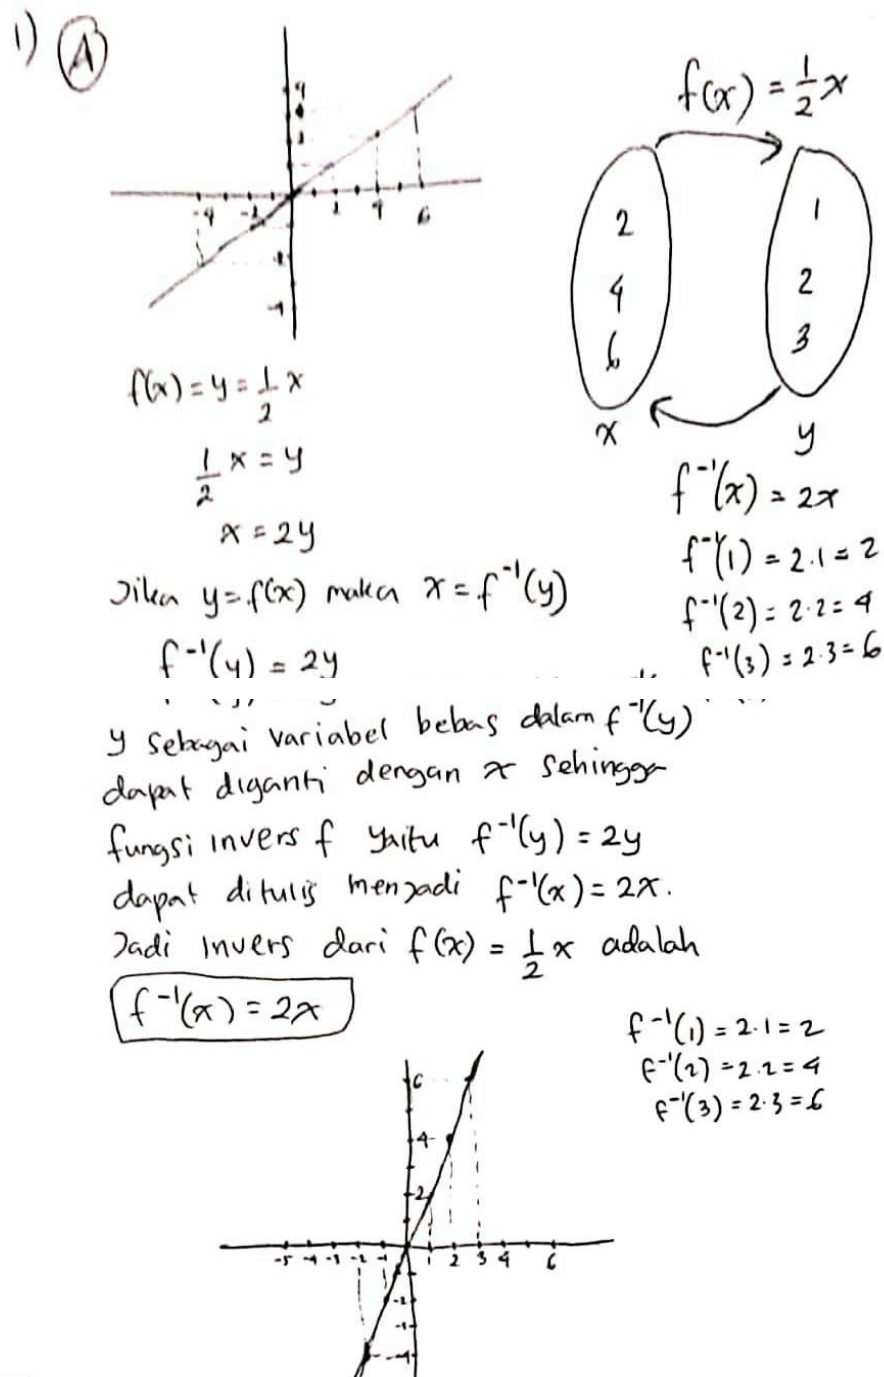 1) A
f(x) = 1/2 x
4
-4 -2 2 4 6
f(x) = y = 1/2 x
1/2 x = y
x = 2y
Jika y = f(x) maka x = f⁻¹(y)
f⁻¹(y) = 2y
2 1
4 2
6 3
x y
f⁻¹(x) = 2x
f⁻¹(1) = 2.1 = 2
f⁻¹(2) = 2.2 = 4
f⁻¹(3) = 2.3 = 6
y sebagai variabel bebas dalam f⁻¹(y)
dapat diganti dengan x sehingga
fungsi invers f yaitu f⁻¹(y) = 2y
dapat ditulis menjadi f⁻¹(x) = 2x.
Jadi invers dari f(x) = 1/2 x adalah
f⁻¹(x) = 2x
f⁻¹(1) = 2.1 = 2
f⁻¹(2) = 2.2 = 4
f⁻¹(3) = 2.3 = 6
6
4
2
-5 -4 -3 -2 -1 1 2 3 4 6
-2
-4